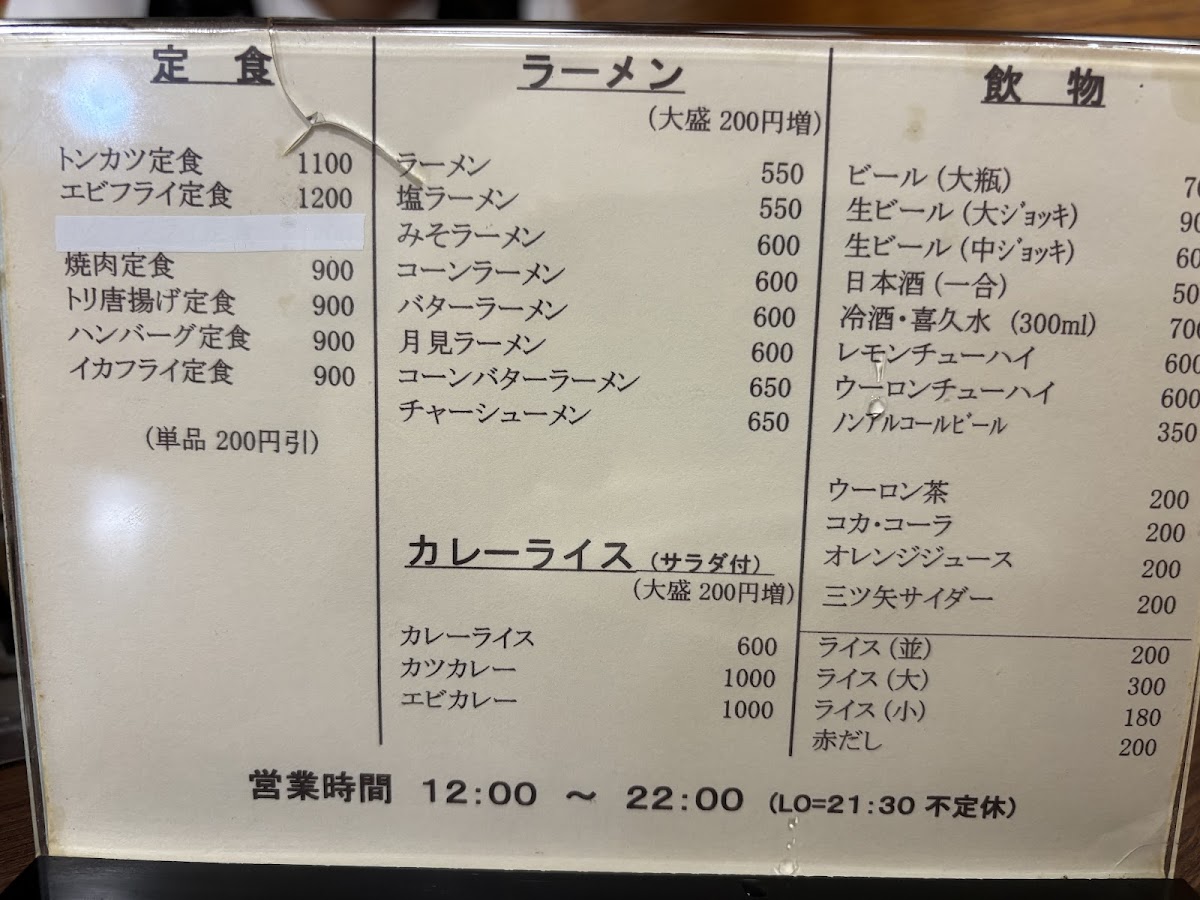 定　食
トンカツ定食 1100
エビフライ定食 1200
焼肉定食 900
トリ唐揚げ定食 900
ハンバーグ定食 900
イカフライ定食 900
(単品 200円引)
ラーメン
(大盛 200円増)
ラーメン 550
塩ラーメン 550
みそラーメン 600
コーンラーメン 600
バターラーメン 600
月見ラーメン 600
コーンバターラーメン 650
チャーシューメン 650
カレーライス (サラダ付)
(大盛 200円増)
カレーライス 600
カツカレー 1000
エビカレー 1000
飲　物
ビール (大瓶)
生ビール (大ｼﾞｮｯｷ)
生ビール (中ｼﾞｮｯｷ)
日本酒 (一合)
冷酒・喜久水 (300ml) 700
レモンチューハイ 600
ウーロンチューハイ 600
ノンアルコールビール 350
ウーロン茶 200
コカ・コーラ 200
オレンジジュース 200
三ツ矢サイダー 200
ライス (並) 200
ライス (大) 300
ライス (小) 180
赤だし 200
営業時間 12:00 ～ 22:00 (LO=21:30 不定休)